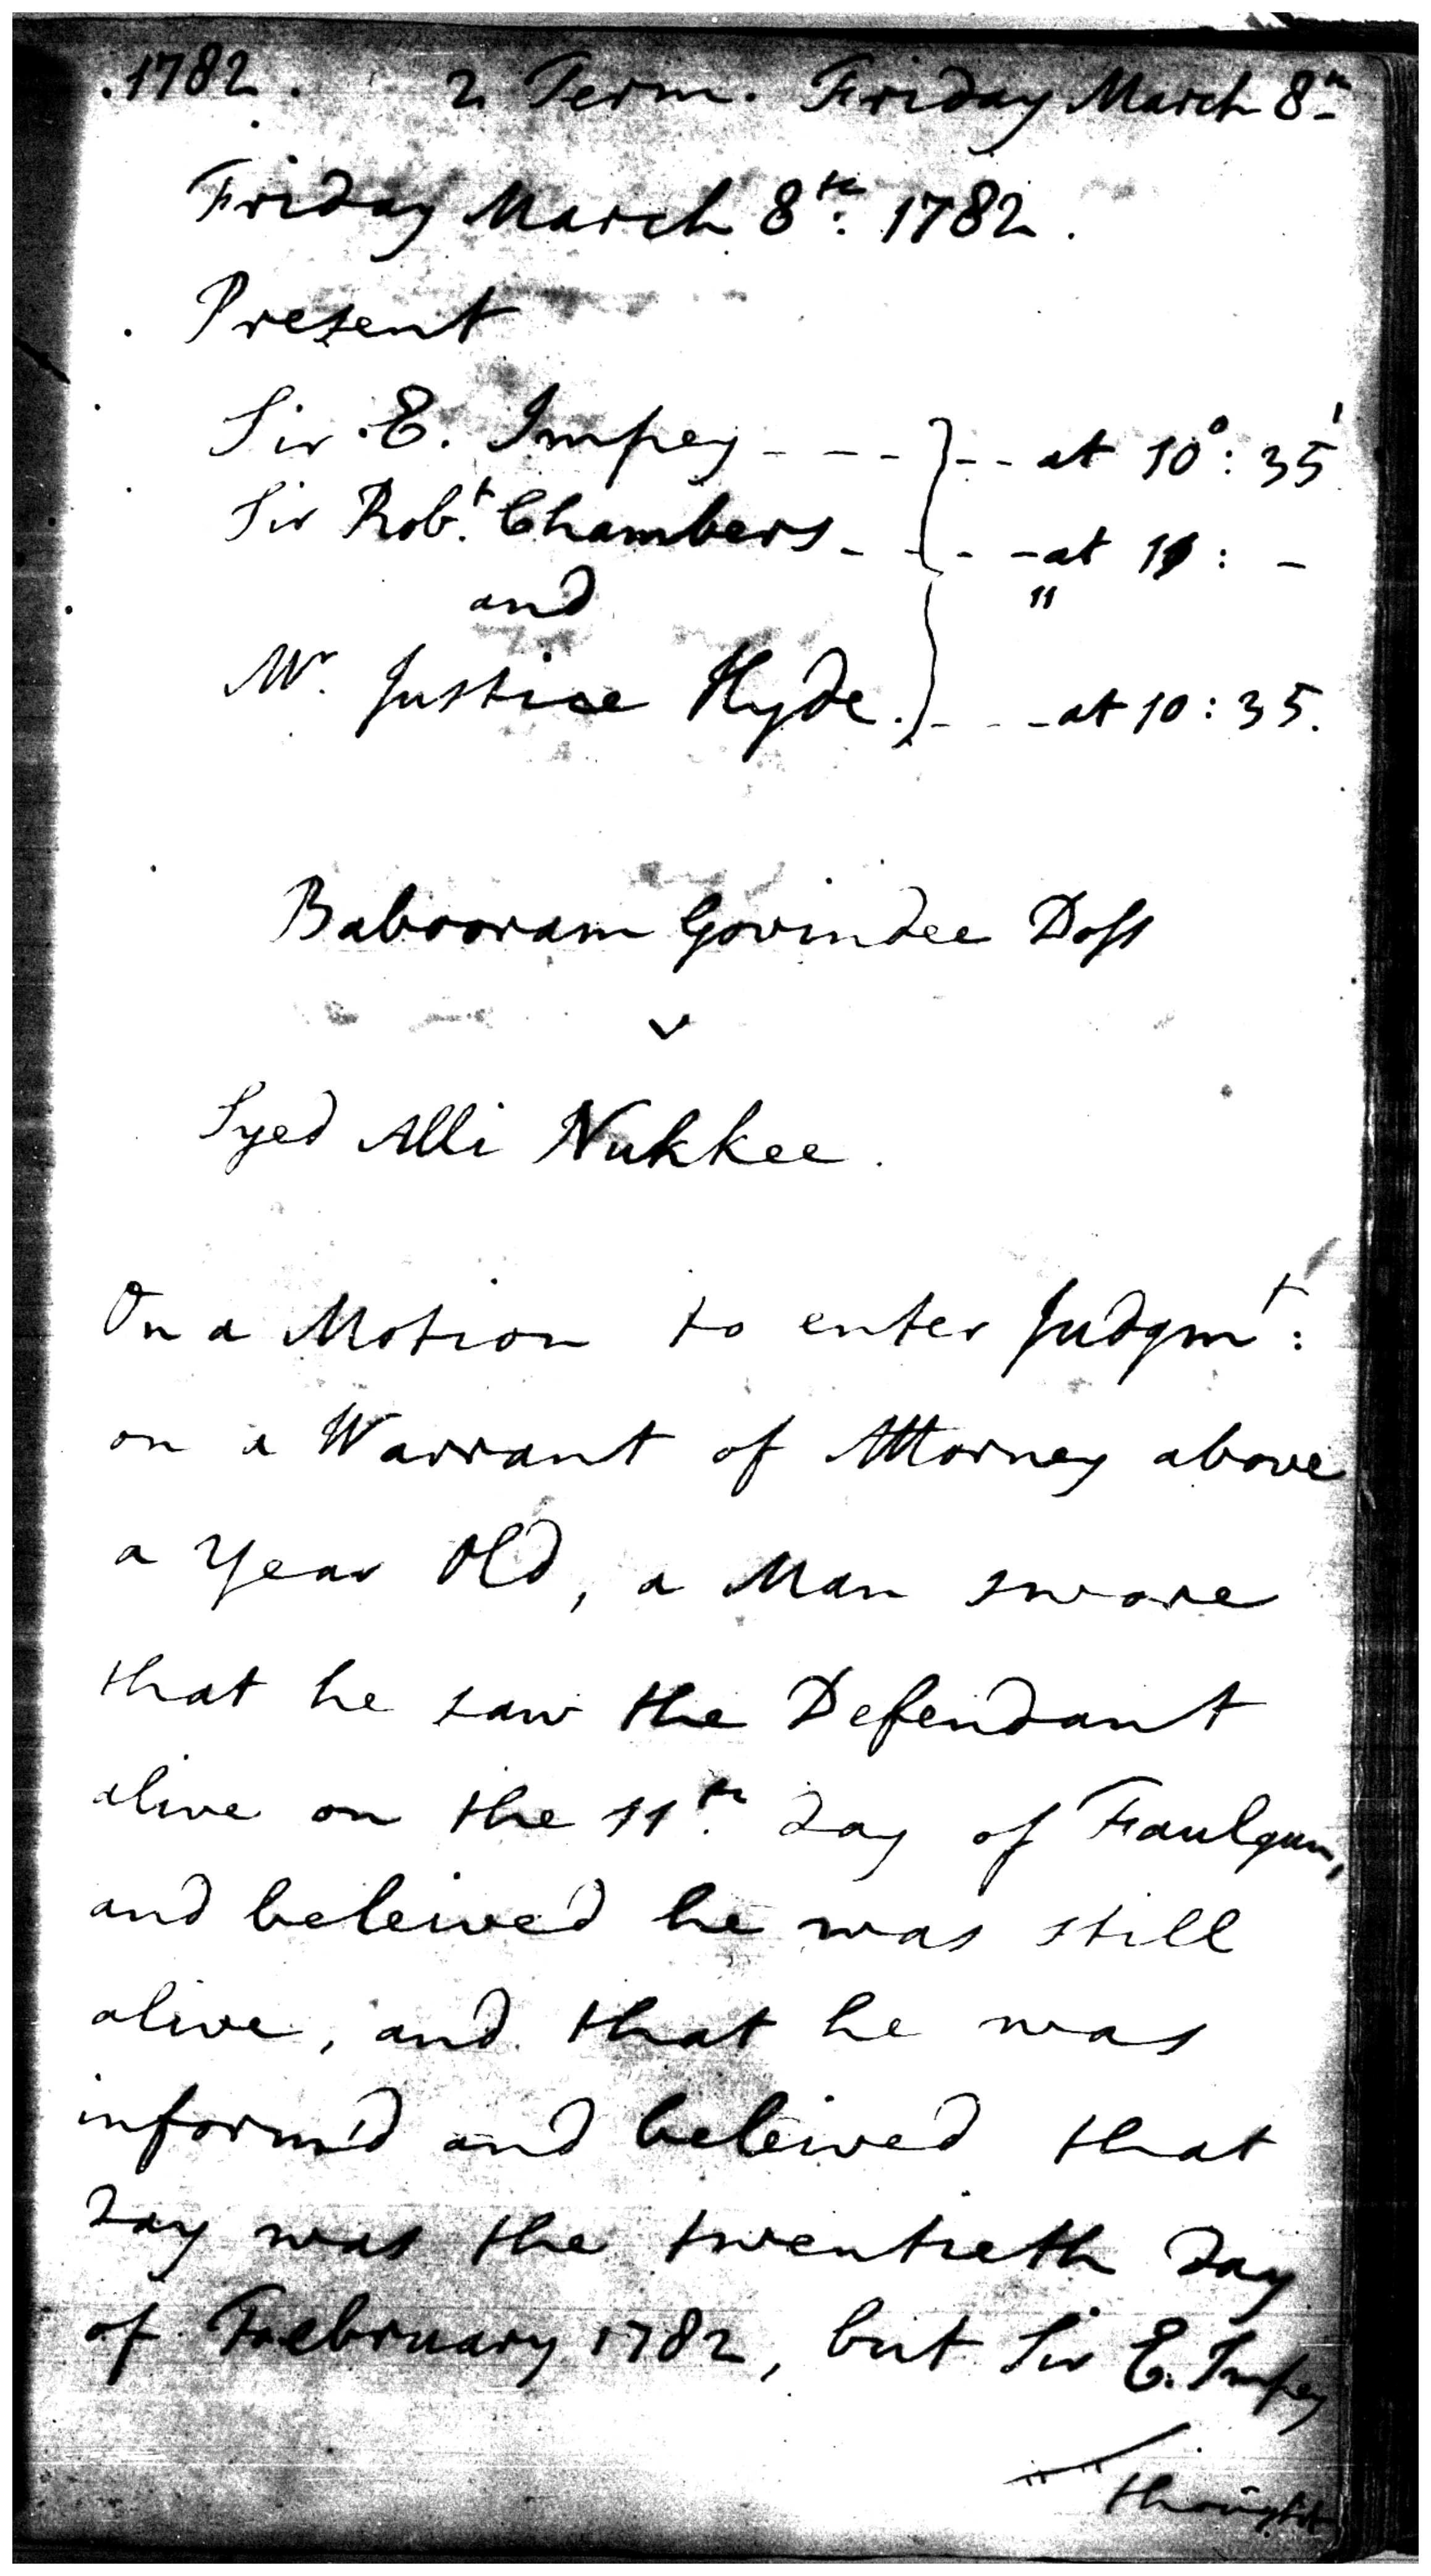 .1782. 2 Term. Friday March 8th
Friday March 8th: 1782.
Present
Sir E. Impey - - - - } - - at 10°: 35'
Sir Robt. Chambers - - - - at 11 : -
and "
Mr. Justice Hyde. - - - at 10 : 35.
Babooram Govindee Doss
v
Syed Alli Nukkee.
On a Motion to enter Judgmt:
on a Warrant of Attorney above
a Year Old, a Man swore
that he saw the Defendant
alive on the 11th. day of Faulgun,
and beleived he was still
alive, and that he was
inform'd and beleived that
day was the twentieth day
of February 1782, but Sir E. Impey
thought